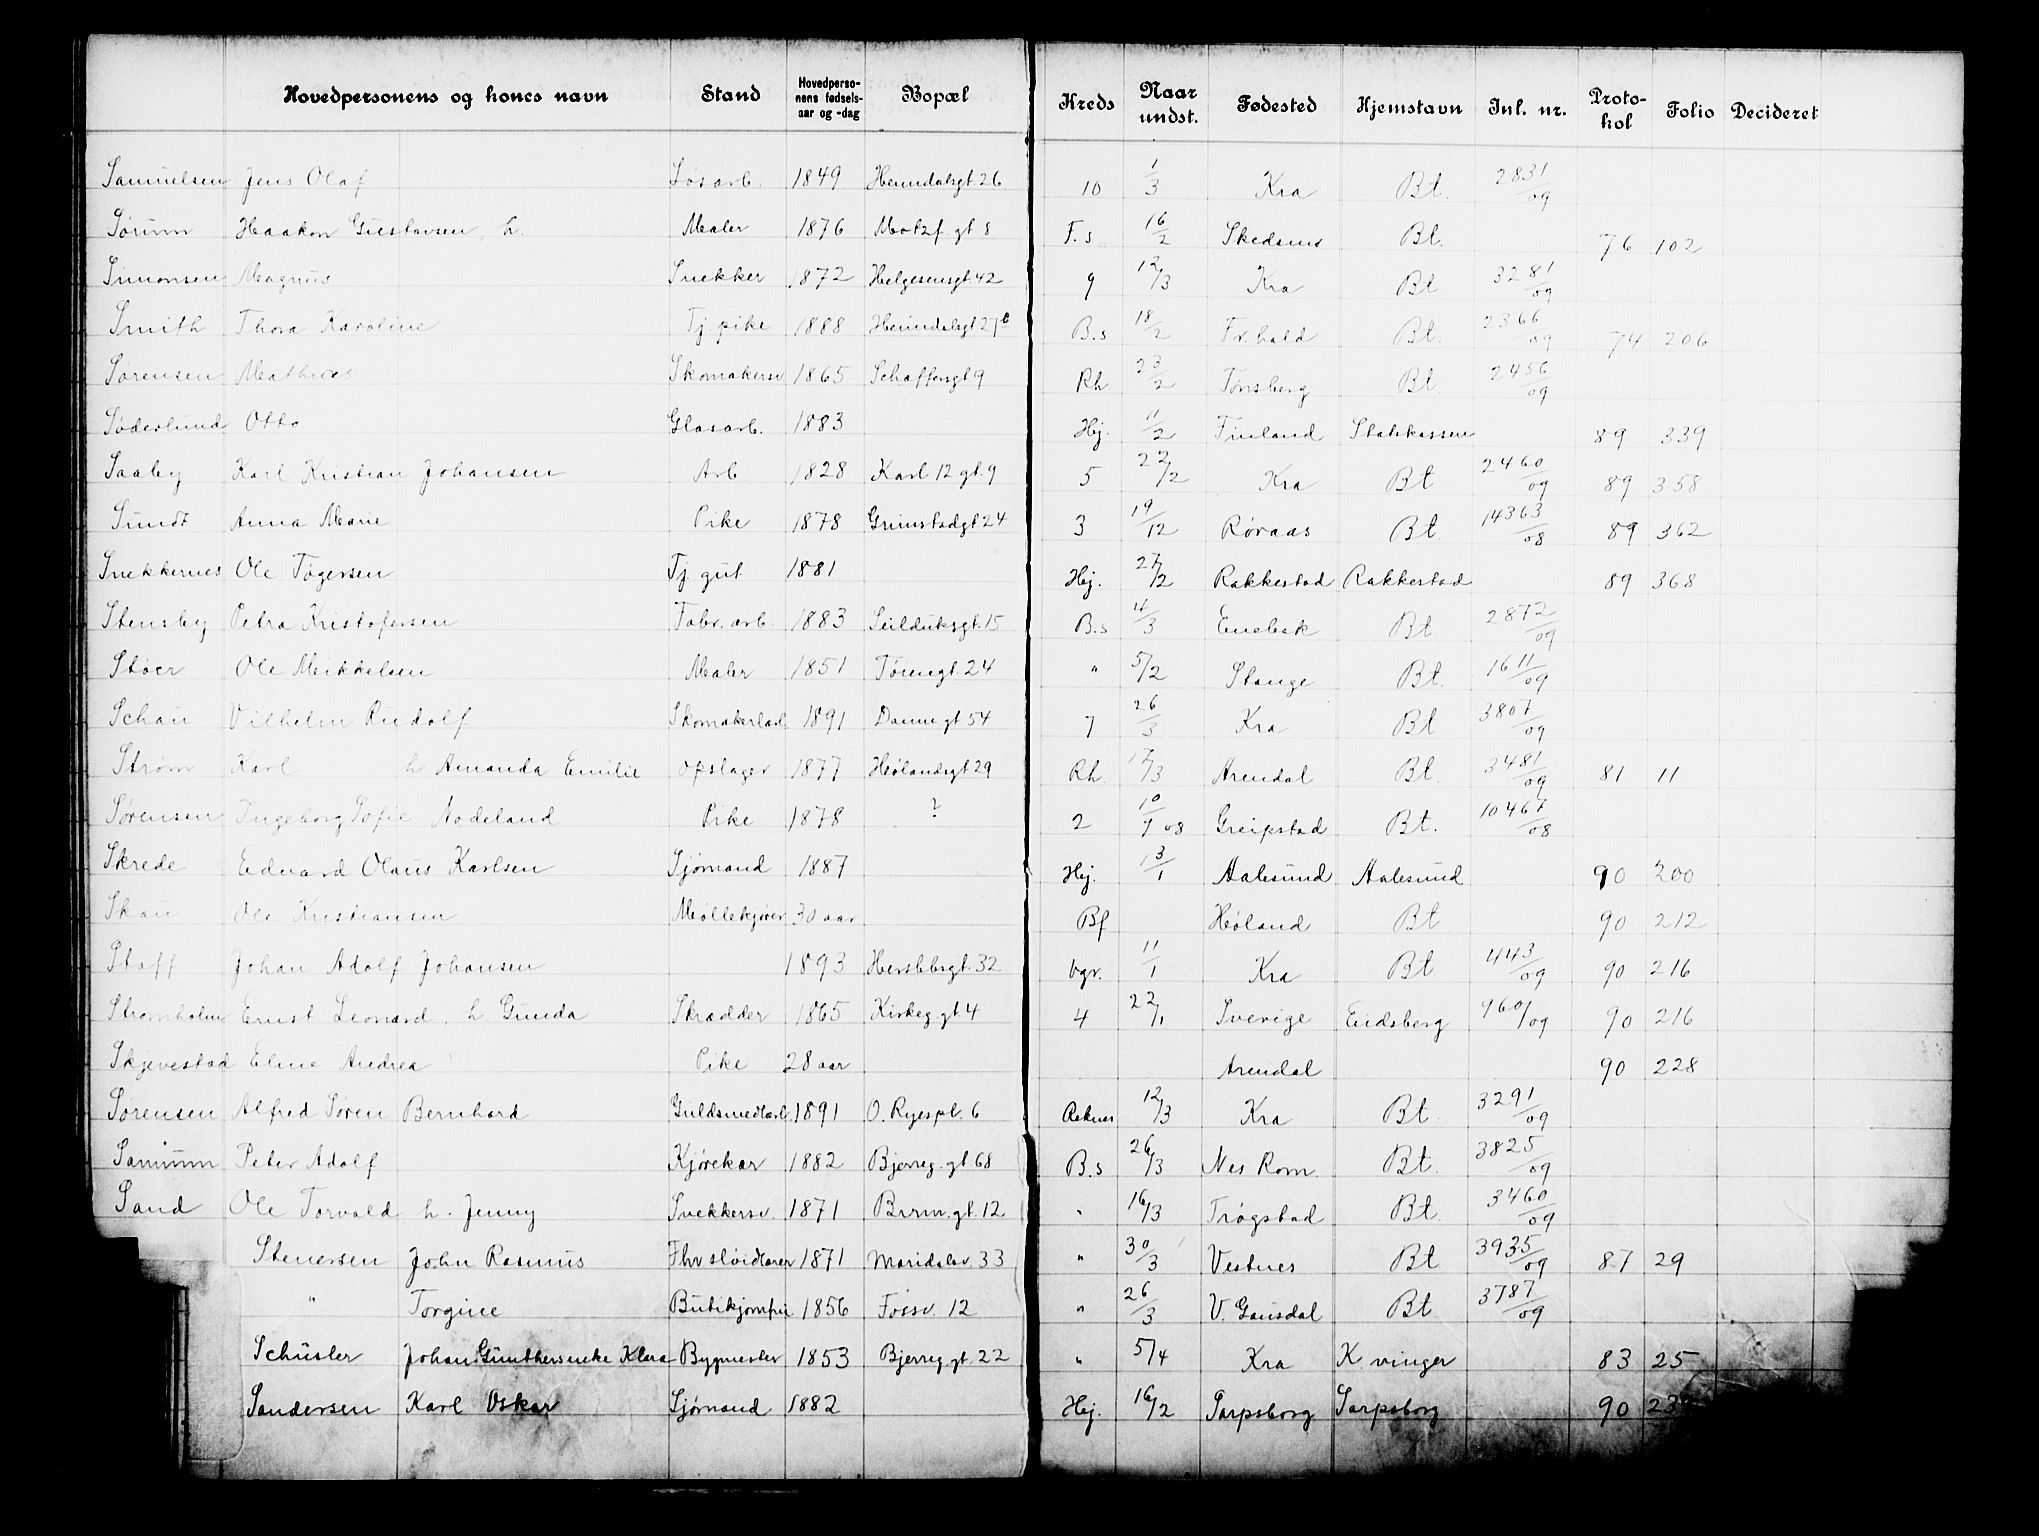 Hovedpersonens og kones navn Stand Hovedperso-nens fødsels-aar og -dag Bopæl Kreds Naar undst. Fødested Hjemstavn Inl. nr. Proto-kol Folio Decideret
Samuelsen Jens Olaf Løsarb. 1849 Heimdalsgt. 26 10 1/3 Kra Bt. 2831/09
Sørum Haakon Gustavsen, h. Maler 1876 Motzf. gt 8 F.s 16/2 Skedsmo Bt. 76 102
Simonsen Magnus Snekker 1872 Helgesensgt. 42 9 12/3 Kra Bt 3281/09
Smith Thora Karoline Tj. pike 1888 Heimdalsgt 27 B.s 18/2 Fr.hald Bt. 2366/09 74 206
Sørensen Mathias Skomakersv. 1865 Schaffersgt 9 Rh. 23/2 Tønsberg Bt. 2456/09
Søderlund Otto Glasarb. 1883 Hej. 11/2 Finland Statskassen 89 339
Saaby Karl Kristian Johansen Arb 1828 Karl 12 gt. 9 5 22/2 Kra Bt 2460/09 89 358
Sundt Anna Marie Pike 1878 Grimstadgt 24 3 19/12 Røraas Bt 14363/08 89 362
Snekkernes Ole Tøgersen Tj. gut 1881 Hej. 27/2 Rakkestad Rakkestad 89 368
Stensby Petra Kristofersen Fabr. arb. 1883 Seilduksgt. 15 B.s 4/3 Enebak Bt 2872/09
Støer Ole Mikkelsen Maler 1851 Tøiengt 24 " 5/2 Stange Bt. 1611/09
Schau Vilhelm Rudolf Skomakerlærl 1891 Danm.gt 54 7 26/3 Kra Bt 3807/09
Strøm Karl h Amanda Emilie Opslager 1877 Hølandsgt 29 Rh. 17/3 Arendal Bt. 3481/09 81 11
Sørensen Ingeborg Sofie Aodeland Pike 1878 ? 2 10/9 08 Greipstad Bt. 10467/08
Skrede Edvard Olaus Karlsen Sjømand 1887 Hej. 13/1 Aalesund Aalesund 90 200
Skau Ole Kristiansen Møllekjører 30 aar Bf Høland Bt 90 212
Staff Johan Adolf Johansen 1893 Herslebsgt. 32 Vgr. 11/1 Kra Bt 443/09 90 216
Strømholm Ernst Leonard, h Gunda Skrædder 1865 Kirkeg. gt 4 4 22/1 Sverige Eidsberg 960/09 90 216
Skjevestad Eline Andrea Pike 28 aar Arendal 90 228
Sørensen Alfred Søren Bernhard Guldsmedlærl. 1891 O. Ryespl. 6 12/3 Kra Bt. 3291/09
Samuum Peter Adolf Kjørekar 1882 Bjerreg. gt 68 B.s 26/3 Nes Rom. Bt. 3825/09
Sand Ole Torvald h. Jenny Snekkersv. 1871 Brrm. gt. 12 " 16/3 Trøgstad Bt. 3460/09
Stenersen John Rasmus Fhv sløidlærer 1871 Maridalsv. 33 " 30/3 Vestnes Bt 3935/09 87 29
" Torgine Butikjomfru 1856 Fossv. 12 " 26/3 V. Gausdal Bt. 3787/09
Schüsler Johan Gunther enke Klara Bygmester 1853 Bjerreg. gt. 22 " 5/4 Kra K.vinger 83 25
Sandersen Karl Oskar Sjømand 1882 Hej. 16/2 Sarpsborg Sarpsborg 90